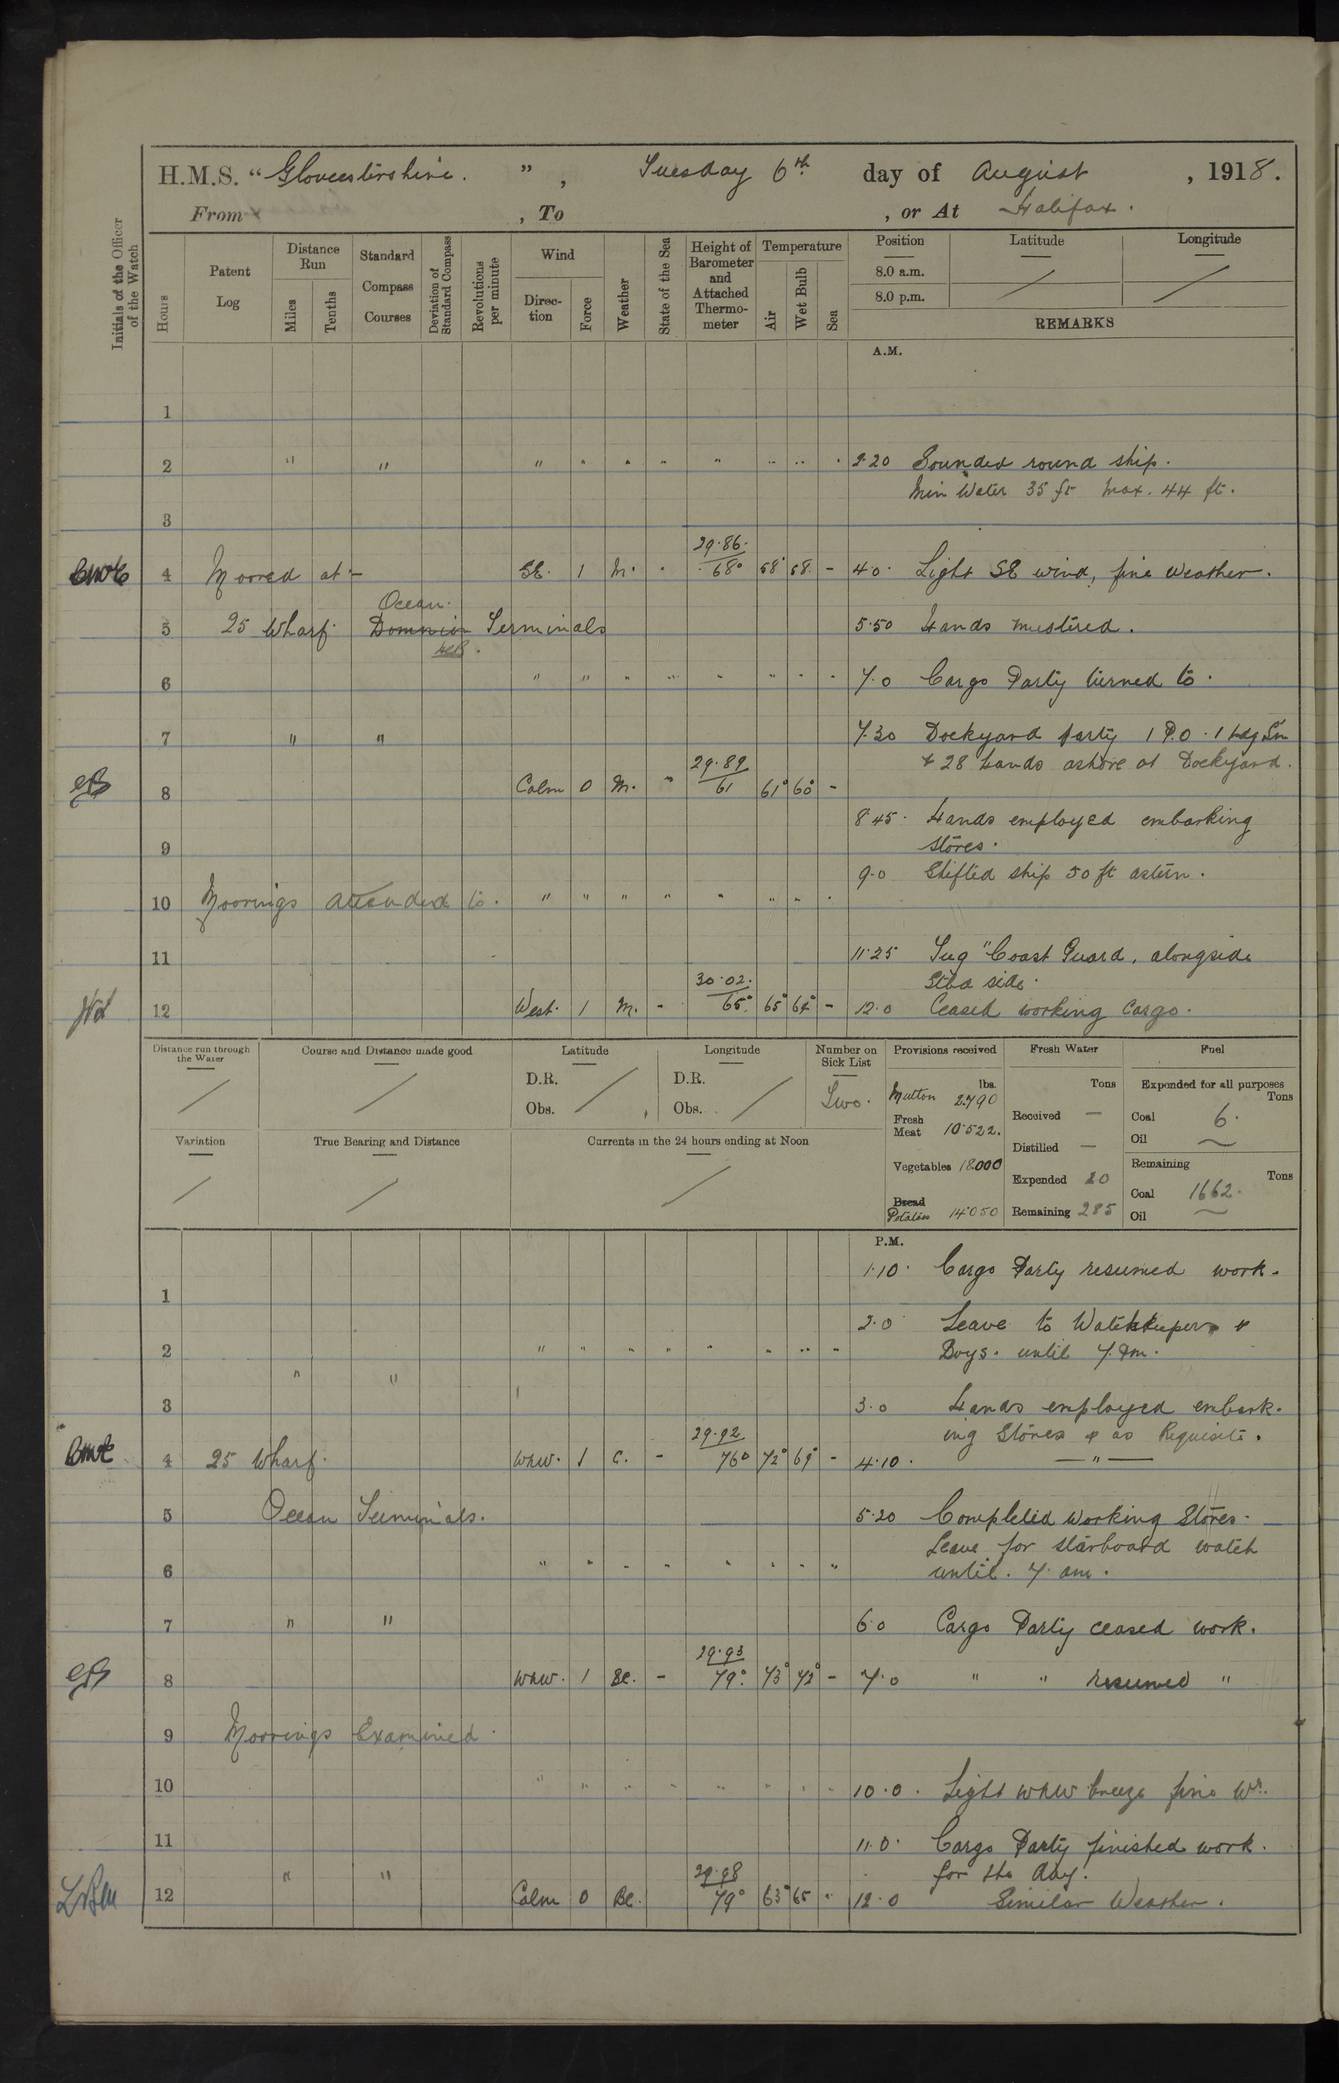 H.M.S. "Gloucestershire.", Tuesday 6th day of August, 1918.
From , To , or At Halifax.
Initials of the Officer of the Watch
Hours
Patent Log
Distance Run
Miles
Tenths
Standard Compass Courses
Deviation of Standard Compass
Revolutions per minute
Wind
Direc-tion
Force
Weather
State of the Sea
Height of Barometer and Attached Thermo-meter
Temperature
Air
Wet Bulb
Sea
Position
Latitude
Longitude
8.0 a.m.
8.0 p.m.
REMARKS
A.M.
1
2 " " " " " " " " " " 2.20 Sounded round ship.
Min Water 35 ft Max. 44 ft.
3
29.86.
4 Moored at :- SE. 1 M. " 68° 68° 68. - 4.0. Light SE wind, fine weather.
Ocean.
5 25 Wharf. Dominion Terminals 5.50 Hands mustered.
6 " " " " " " " " 7.0 Cargo Party turned to.
7 " " 7.30 Dockyard party 1 P.O. 1 Ldg Sm
29.89 & 28 Hands ashore at Dockyard.
8 Calm 0 M. " 61 61° 60° -
8.45. Hands employed embarking
9 stores.
9.0 Shifted ship 50 ft astern.
10 Moorings attended to. " " " " " " " "
11 11.25 Tug "Coast Guard, alongside
30.02. Stbd side.
12 West. 1 M. - 65° 65° 64° - 12.0 Ceased working Cargo.
Distance run through the Water
Course and Distance made good
Latitude
D.R.
Obs.
Longitude
D.R.
Obs.
Number on Sick List
Two.
Provisions received
lbs.
Mutton 2790
Fresh Meat 10522.
Vegetables 18000
Bread
Potatoes 14050
Fresh Water
Tons
Received —
Distilled —
Expended 20
Remaining 285
Fuel
Expended for all purposes
Tons
Coal 6.
Oil
Remaining
Tons
Coal 1662.
Oil
Variation
True Bearing and Distance
Currents in the 24 hours ending at Noon
P.M.
1.10. Cargo Party resumed work.
1
2.0 Leave to Watchkeepers &
2 " " " " " " " " Boys. until 7. am.
" "
3 3.0 Hands employed embark-
29.92 ing Stores & as Requisite.
4 25 Wharf. WNW. 1 C. - 76° 72° 69° - 4.10. — " —
5 Ocean Terminals. 5.20 Completed Working Stores.
Leave for starboard watch
6 " " " " " " " " until. 7. am.
7 " " 6.0 Cargo Party ceased work.
29.93
8 WNW. 1 BC. - 79° 73° 72° - 7.0 " " resumed "
9 Moorings Examined.
10 " " " " " " " " 10.0. Light WNW breeze fine Wr.
11 11.0. Cargo Party finished work.
29.98 for the day.
12 Calm 0 BC. 79° 63° 65 " 12.0 Similar Weather.